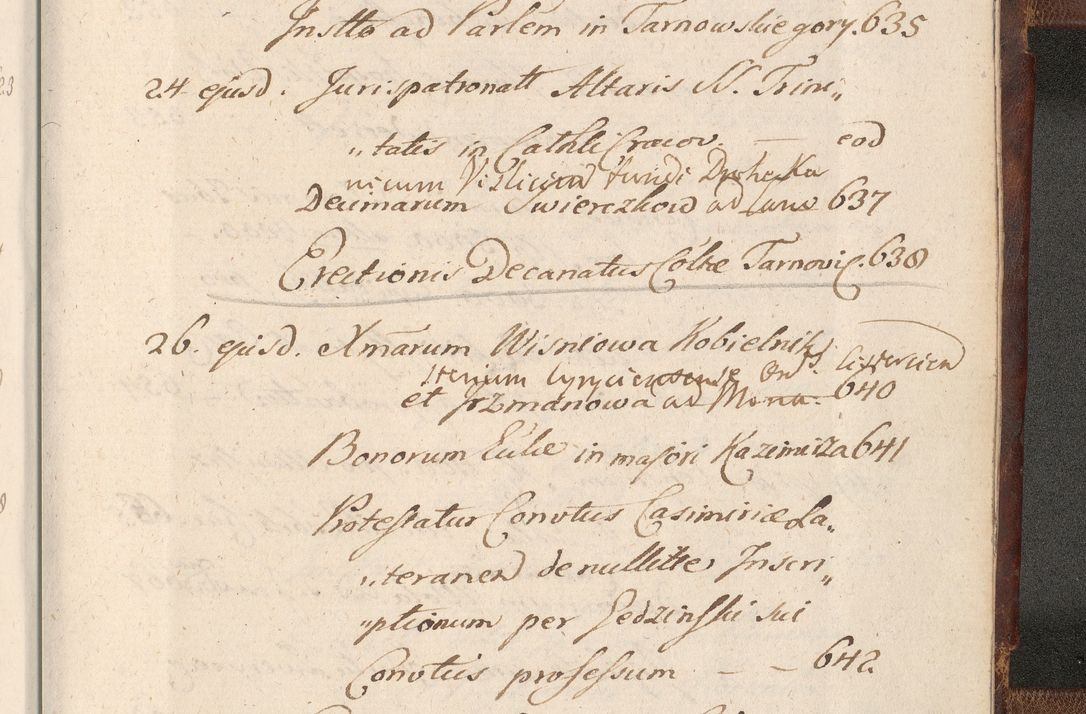 Instto ad Parlem in Tarnowskiegory. 635
24. ejusd. Jurispatronatt Altaris SS. Trini„
„tatis in Cathli Cracov. — eod
nicum Vislicien fundi
Decimarum Swierczkow ad 637
Erectionis Decanatus Collæ Tarnovi. 638
26. ejusd. Xmarum Wisniowa Kobielnik
sterium Ord. s. Cistercien
et Jozmanowa ad Mona. 640
Bonorum in majori Kazimirza 641
Protestatur Convtus Casimiriæ La„
„teranen de nullitte Inscri„
„ptionum per Jedzinski sui
Convtus professum — — 642